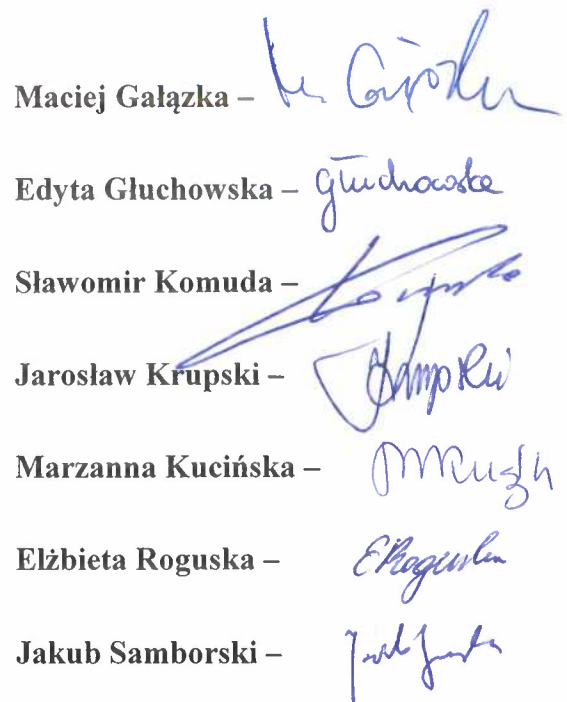 Maciej Gałązka –
Edyta Głuchowska – Głuchowska
Sławomir Komuda –
Jarosław Krupski – Krupski
Marzanna Kucińska –
Elżbieta Roguska – ERoguska
Jakub Samborski –